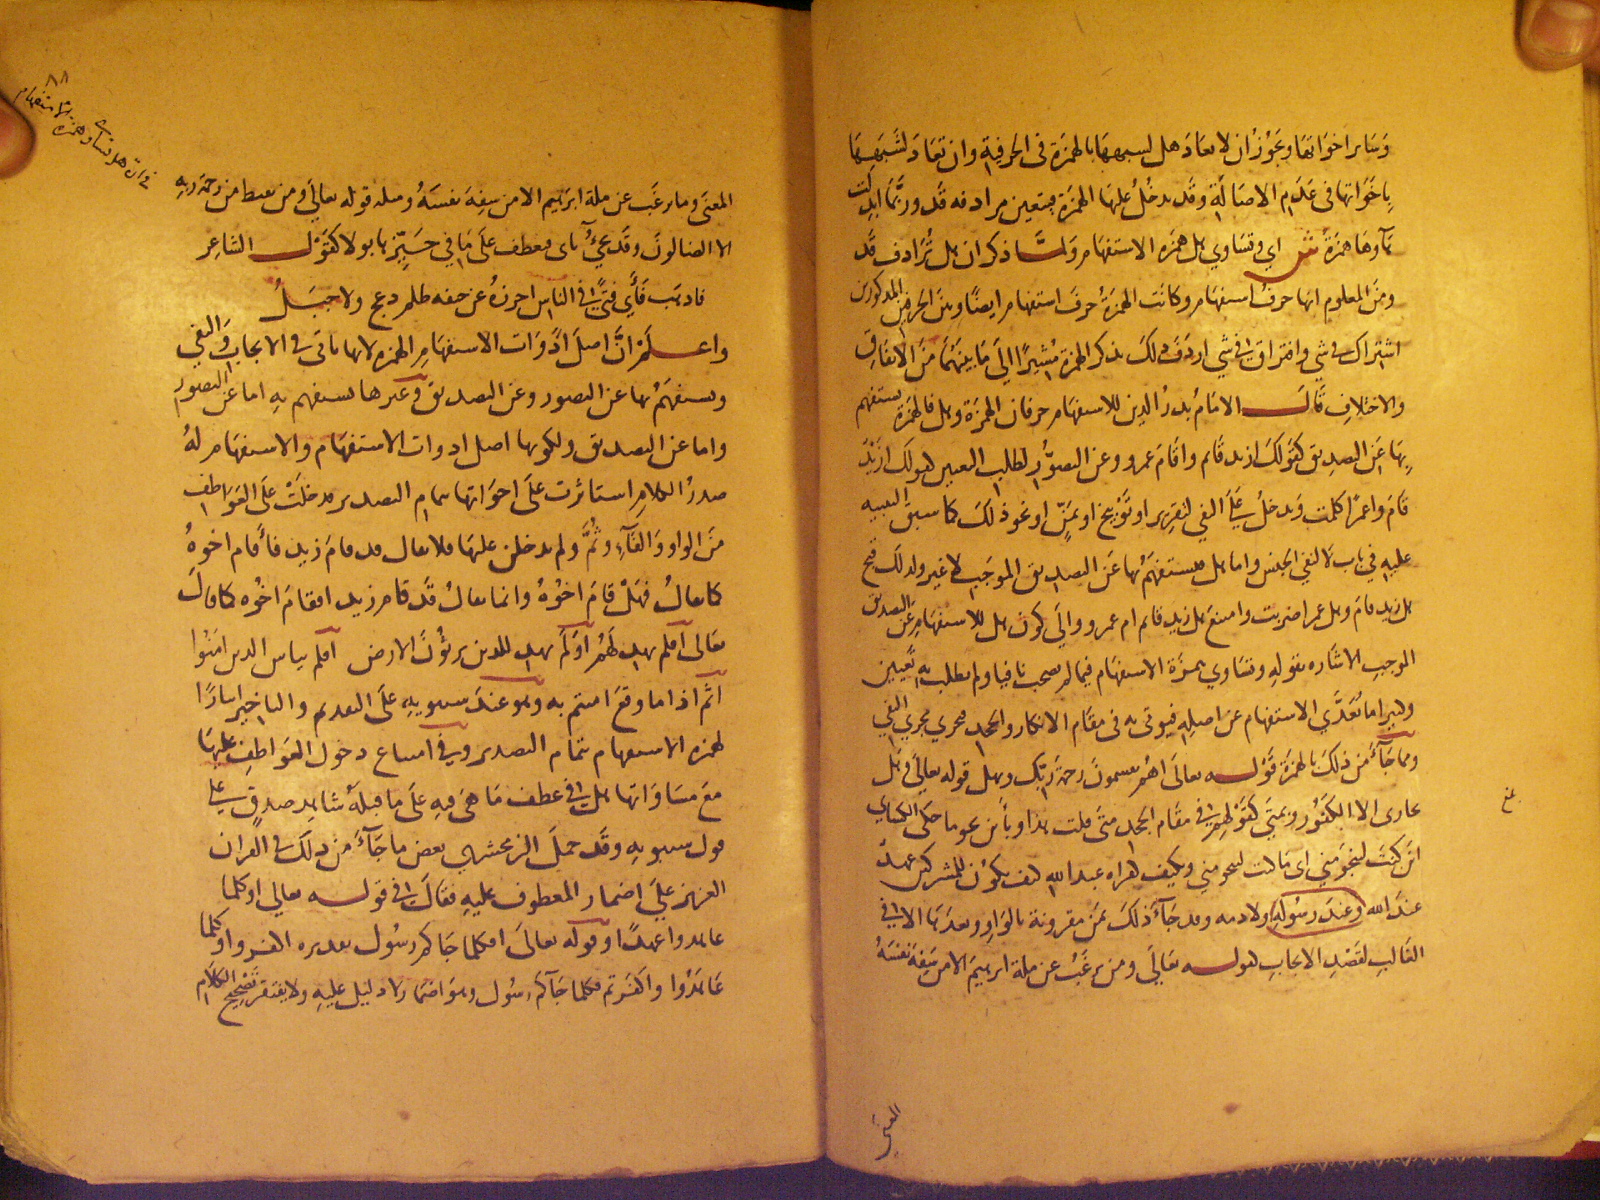 وسائر اخواتها ويجوز ان لا تعاد هل لشبهها بالهمزة في الحرفية وان تعاد لشبهها
باخواتها في عدم الاصالة وقد تدخل عليها الهمزة فيتعين مرادفه قد وربما ابدلت
هاوها همزة ش اي وتساوي هل همزه الاستفهام ولما ذكر ان هل ترادف قد
ومن المعلوم انها حرف استفهام وكانت الهمزة حرف استفهام ايضا وبين الحرفين المذكورين
اشتراك في شي وافتراق في شي اردف ذلك بذكر الهمزة مشيرا الي ما بينهما من الاتفاق
والاختلاف قال الامام بدر الدين للاستفهام حرفان الهمزة وهل فالهمزة يستفهم
بها عن التصديق كقولك ازيد قائم واقام عمرو وعن التصور لطلب التعيين كقولك ازيد
قام وا عمرا كلمت وتدخل علي النفي لتقرير او توبيخ او تمن او نحو ذلك كما سبق التنبيه
عليه في باب لا لنفي الجنس واما هل فيستفهم بها عن التصديق الموجب لا غير ولذلك قبح
هل زيد قام وهل عمرا ضربت وامتنع هل زيد قائم ام عمرو والي كون هل للاستفهام عن التصديق
الموجب الاشاره بقوله وتساوي همزة الاستفهام فيما لم يصحب نافيا ولم يطلب به تعيين
وكثيرا ما تعدي الاستفهام عن اصله فيوتى به في مقام الانكار والجحد مجري مجري النفي
ومما جآء من ذلك بالهمزة قوله تعالى اهم يقسمون رحمة ربك وبهل قوله تعالي وهل
يجازى الا الكفور وبمتي كقولهم في مقام الجحد متي قلت هذا وباين نحو ما حكى الكسائي
اين كنت لتنجومني اى ما كنت لتنجومني وبكيف كقراه عبد الله كيف يكون للمشركين عهد
عند الله وعند رسوله ولا ذمه وقد جآء ذلك بمن مقرونة بالواو وبعدها الا في
الغالب لقصد الايجاب كقوله تعالي ومن يرغب عن ملة ابرهيم الا من سفه نفسه
المعني
٨٨
في ان هل تساوي همزة الاستفهام
المعني وما يرغب عن ملة ابرهيم الا من سفه نفسه ومثله قوله تعالي ومن يقنط من رحمة ربه
الا الضالون وقد يجيء باى فيعطف علي ما في حيزها بولا كقول الشاعر
فاذهب فأي فتي في الناس احرزه عن حتفه ظلم دعج ولا جبل
واعلم ان اصل ادوات الاستفهام الهمزه لانها تاتى في الايجاب والنفي
ويستفهم بها عن التصور وعن التصديق وغيرها يستفهم به اما عن التصور
واما عن التصديق ولكونها اصل ادوات الاستفهام والاستفهام له
صدر الكلام استاثرت على اخواتها بتمام التصدير فدخلت على العواطف
من الواو والفآء وثم ولم يدخلن عليها فلا يقال قد قام زيد فأقام اخوه
كما يقال فهل قام اخوه وانما يقال قد قام زيد افقام اخوه كما قال
تعالى افلم يهد لهم اولم يهد للذين يرثون الارض افلم ييأس الذين امنوا
اثم اذا ما وقع امنتم به وهو عند سيبويه على التقديم والتاخير ايثارا
لهمزه الاستفهام بتمام التصدير وفي امتناع دخول العواطف عليها
مع مساواتها هل في عطف ما هي فيه على ما قبله شاهد صدق علي
قول سيبويه وقد حمل الزمخشري بعض ما جآء من ذلك في القران
العزيز علي اضمار المعطوف عليه فقال في قوله تعالي اوكلما
عاهدوا عهدا وقوله تعالى افكلما جاكم رسول تقديره اكفروا وكلما
عاهدوا واكفرتم فكلما جآكم رسول وهو اضمار لا دليل عليه ولا يفتقر تصحيح الكلام